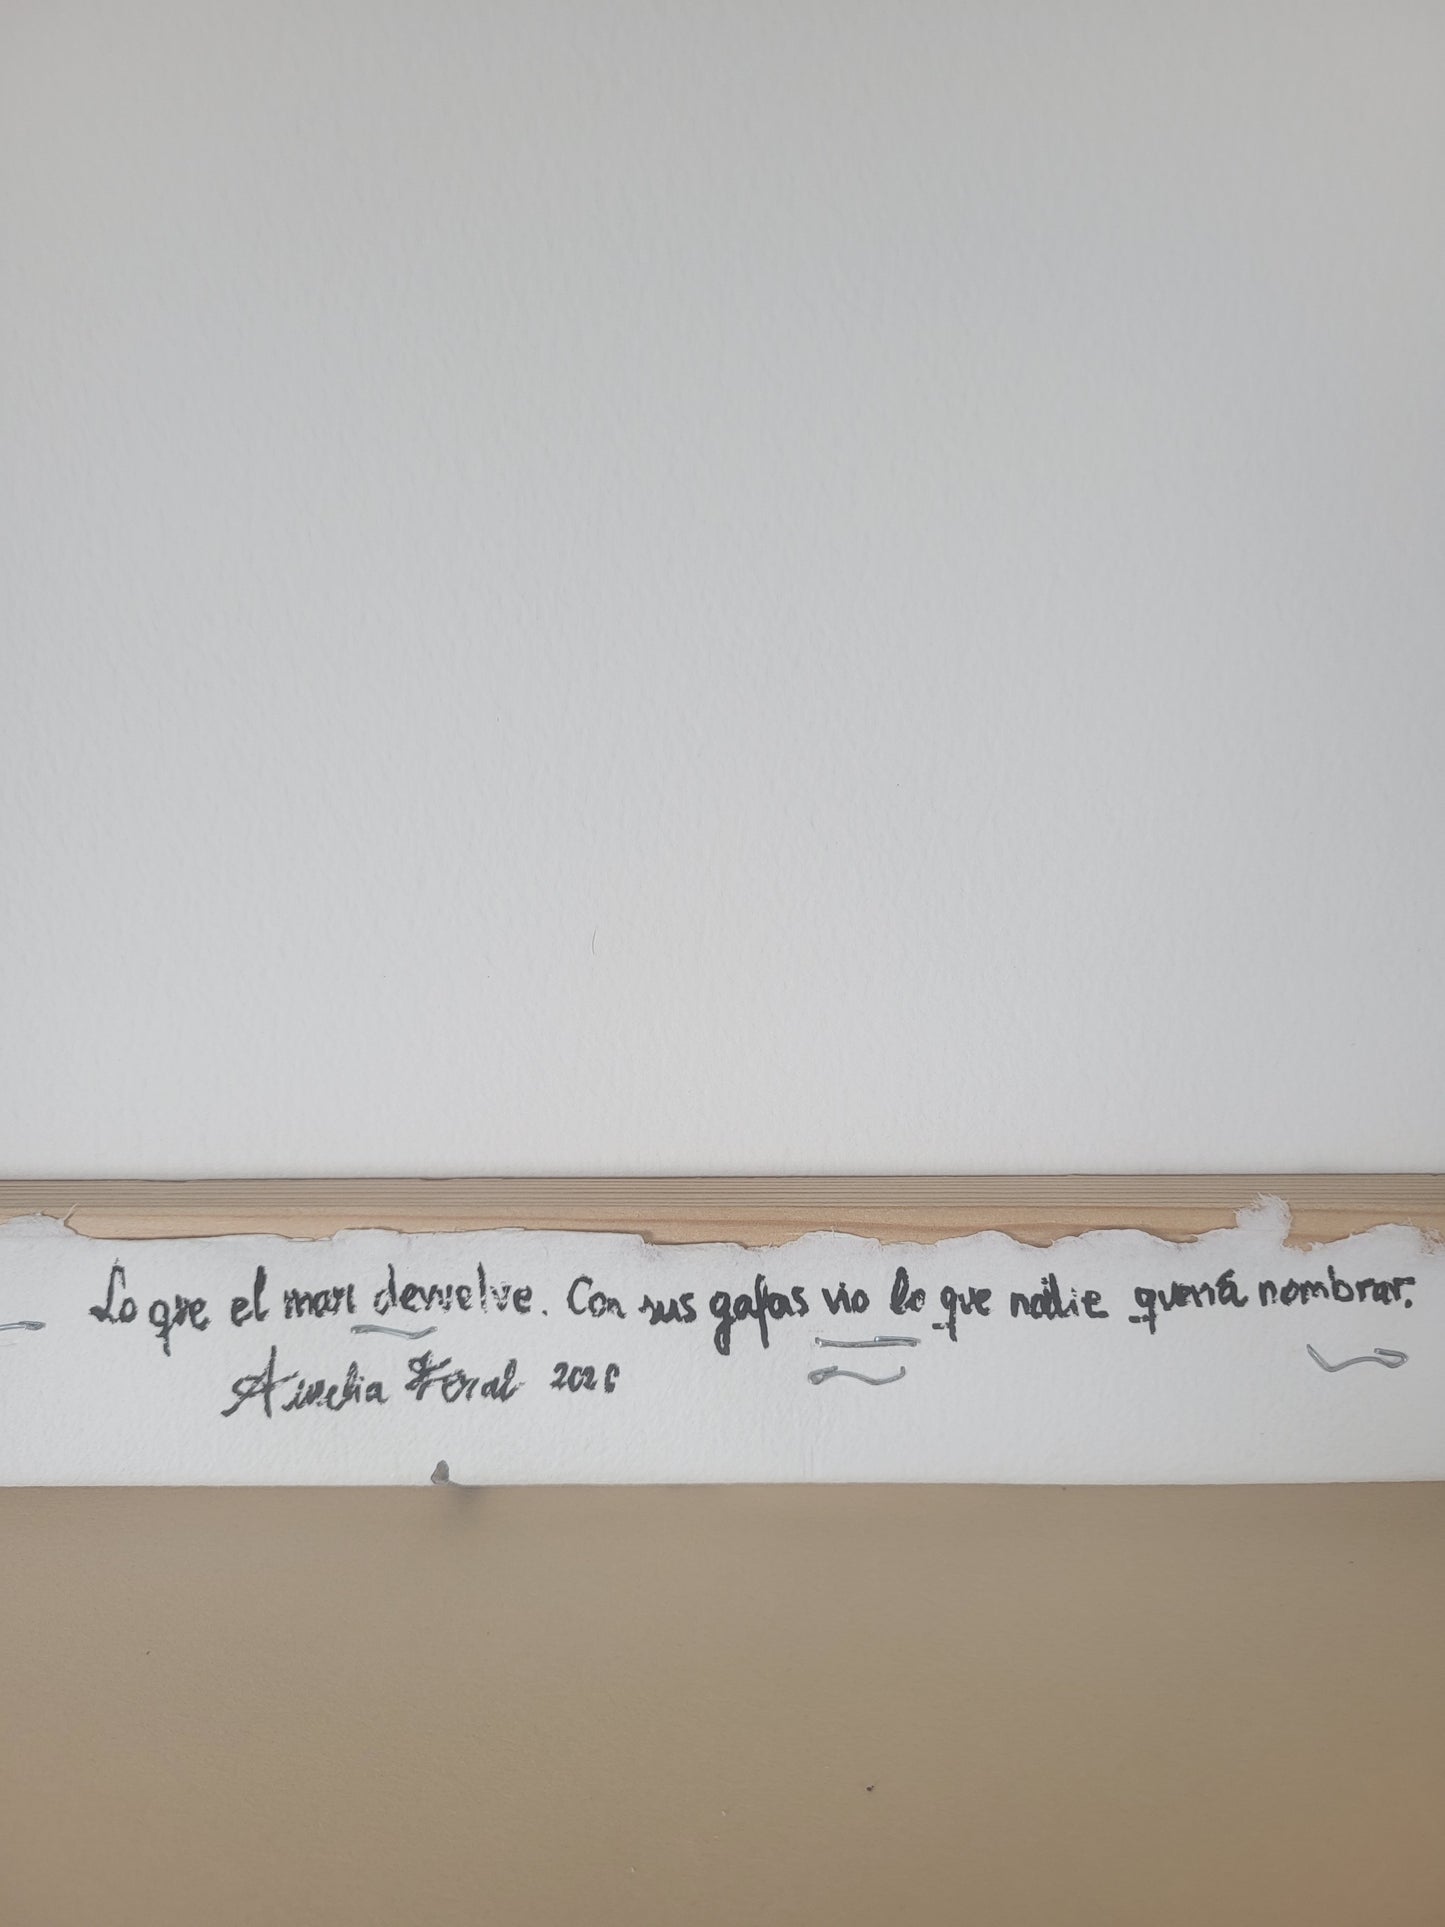 Lo que el mar devuelve. Con sus gafas vio lo que nadie quería nombrar.
Aurelia Feral 2026